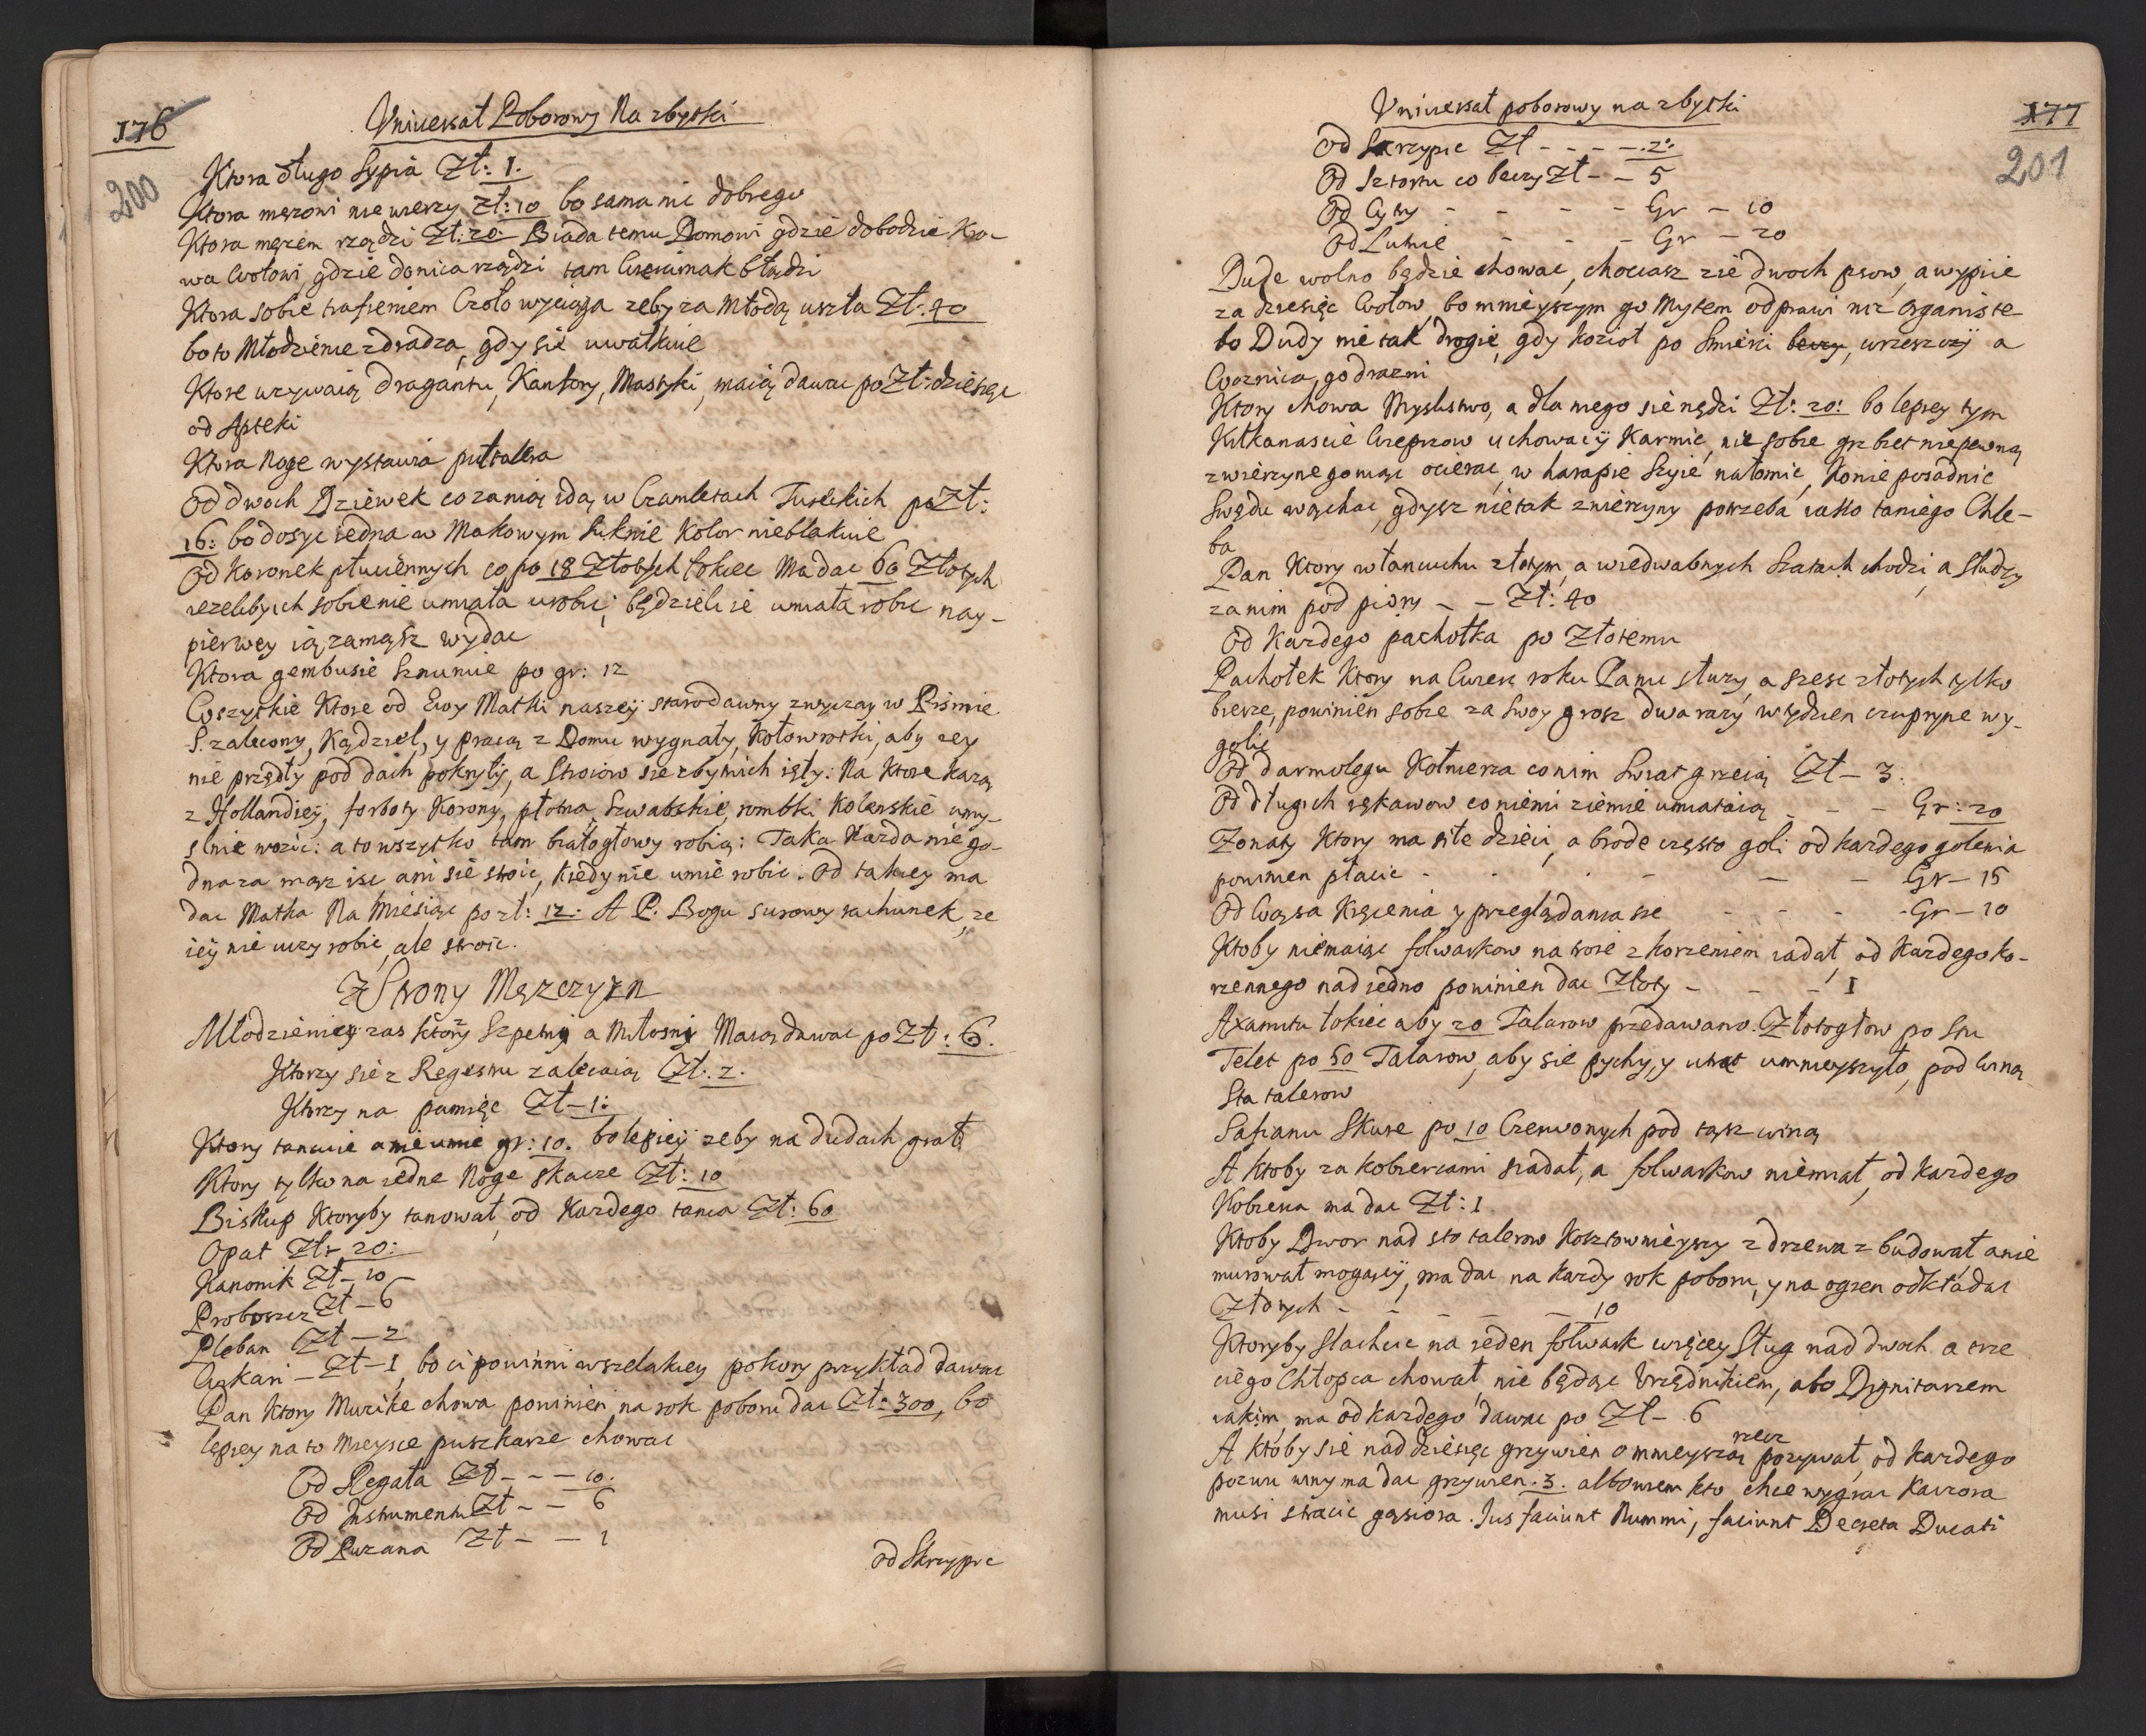 176
200
Vniuersał Poborowy Na zbytki
Ktora długo Sypia Zł: 1.
Ktora męzowi nie wierzy Zł: 10 bo sama nic dobrego
Ktora męzem rządzi Zł: 20. Biada temu Domowi gdzie dobodzie Kro-
wa Wołowi, gdzie donica rządzi tam Wiercimak błądzi
Ktora sobie trafieniem Czoło wyciąga zeby za Młodą uszła Zł: 40
bo to Młodzience zdradza, gdy się uwałkuie
Ktore uzywaią dragantu, Kanfory, Mastyki, maią dawac po Zł: dziesięc
od Apteki
Ktora Noge wystawia puł talera
Od dwoch Dziewek co za nią idą w Czamletach Tureckich po Zł:
16: bo dosyc iedna w Makowym suknie Kolor nieblakuie
Od Koronek płuciennych co po 18 Złotych łokiec Ma dac 60 Złotych
iezeliby ich sobie nie umiała urobic; będzieli ie umiała robic nay-
pierwey ią zamąsz wydac
Ktora gembusie sznuruie po gr: 12
Wszytkie Ktore od Ewy Matki naszeÿ starodawny zwyczay w Pismie
S. zalecony, Kądziel, y pracą z Domu wygnały, Kołowrotki, aby zey
nie przędły pod dach pokryły, a Stroiow sie zbytnich ięły: Na Ktore Kazą
z Hollandieÿ, forboty Korony, płotna Szwabskie, rombki Kolenskie umy-
slnie wozic: a to wszytko tam białogłowy robią: Taka Kazda nie go-
dna za mąz isc, ani się stroic, Kiedy nie umie robic. Od takiey ma
dac Matka Na Miesiąc po zł: 12. A P. Bogu surowy rachunek, ze
ieÿ nie uczy robic, ale stroic.
Z Strony Męzczyzn
Młodziency zas ktorzy Szpetni a Miłosni Maią dawac po Zł: 6.
Ktorzy się z Regestru zalecaią Zł: 2.
Ktorzy na pamięc Zł – 1:
Ktory tancuie a nie umie gr: 10. bo lepieÿ zeby na dudach grał
Ktory tylko na iedne Noge skacze Zł: 10
Biskup Ktoryby tanował, od Kazdego tanca Zł: 60
Opat Zł– 20:
Kanonik Zł– 10
Proboszcz Zł – 6
Pleban Zł – 2
Wikari – Zł – 1, bo ci powinni wszelakiey pokory przykład dawac
Pan Ktory Muzike chowa powinien na rok poboru dac Zł: 300, bo
lepiey na to Mieysce puszkarze chowac
Od Regała Zł – – – 10.
Od Instrumentu Zł – – 6
Od Puzana Zł – – 1
od Skrzypic
177
201
Vniuersał poborowy na zbytki
Od Skrzypic Zł – – – – 2:
Od Sztortu co beczy Zł – – 5
Od Cytry – – – – Gr – 10
Od Lutnie – – – Gr – 20
Dude wolno będzie chowac, chociasz zie dwoch psow, a wypiie
za dziesięc Wołow, bo mnieyszym go Mytem odprawi niz organiste
bo Dudy nie tak drogie, gdy Kozioł po Smierci beczy, wrzeszczÿ a
Woznica go drazni
Ktory chowa Myslistwo, a dla niego się nędzi Zł: 20: bo lepiey tym
Kilkanascie Wieprzow uchowacÿ Karmic, niz sobie grzbiet niepewną
zwierzyne goniąc ocierac, w harapie Szyie nałomic, Konie posadnic
Swądu wąchac, gdysz nie tak zwierzyny potrzeba iako taniego Chle-
ba
Pan Ktory w łancuchu złotym, a w iedwabnych Szatach chodzi, a Słudzy
za nim pod piory – – Zł: 40
Od Kazdego pachołka po Złotemu
Pachołek Ktory na Cwierc roku Panu słuzy, a szesc złotych tylko
bierze, powinien sobie za Swoy grosz dwa razy w tydzien czupryne wy-
golic
Od darmolegu Kołnierza co nim Swiat grzeią Zł – 3.
Od długich rękawow co niemi ziemie umiataią – – Gr: 20
Zonaty Ktory ma siłe dzieci, a brode często goli od kazdego golenia
powinien płacic – – – – – Gr – 15
Od Wąsa Kręcenia y przeglądania sie – – – Gr – 10
Ktoby niemaiąc folwarkow na wsie z korzeniem iadał, od Kazdego ko-
rzennego nad iedno powinien dac Złoty – – – 1
Axamitu łokiec aby 20 Talarow przedawano. Złotogłow po Stu
Telet po 50 Talarow, aby sie pychy, y utrat umnieyszyło, pod winą
Sta talerow
Safianu Skure po 10 Czerwonych pod tąsz winą
A ktoby za kobiercami siadał, a folwarkow niemiał, od kazdego
Kobierca ma dac Zł: 1
Ktoby Dwor nad sto talerow Kosztownieyszy z drzewa zbudował, a nie
murował mogącÿ, ma dac na kazdy rok poboru, y na ogien odkładac
Złotych – – – – – 10
Ktoryby Slachcic na ieden folwark więcey Sług nad dwoch a trze
ciego Chłopca chował, nie będąc Vrzędnikiem, abo Dignitarzem
iakim, ma od kazdego dawac po Zł – 6
A ktoby się nad dziesięc grzywien o mnieyszą rzecz pozywał, od kazdego
pozwu winy ma dac grzywien. 3. albowiem kto chce wygrac Kaczora
musi stracic gąsiora. Ius faciunt Nummi, faciunt Decreta Ducati